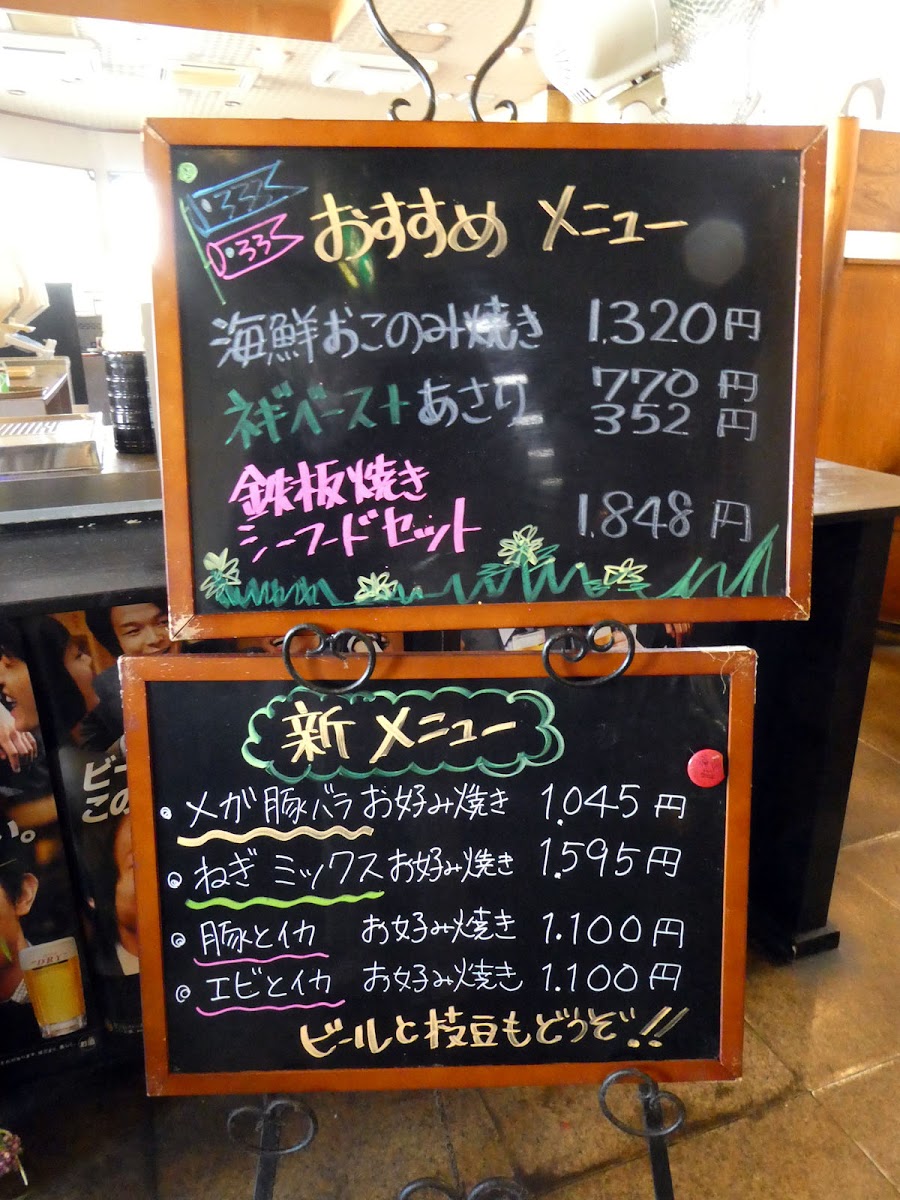 おすすめ メニュー
海鮮おこのみ焼き 1.320円
ネギベース+あさり 770円
352円
鉄板焼き
シーフードセット 1.848円
新メニュー
・メガ豚バラお好み焼き 1.045円
ねぎミックスお好み焼き 1.595円
豚とイカ お好み焼き 1.100円
エビとイカ お好み焼き 1.100円
ビールと枝豆もどうぞ!!